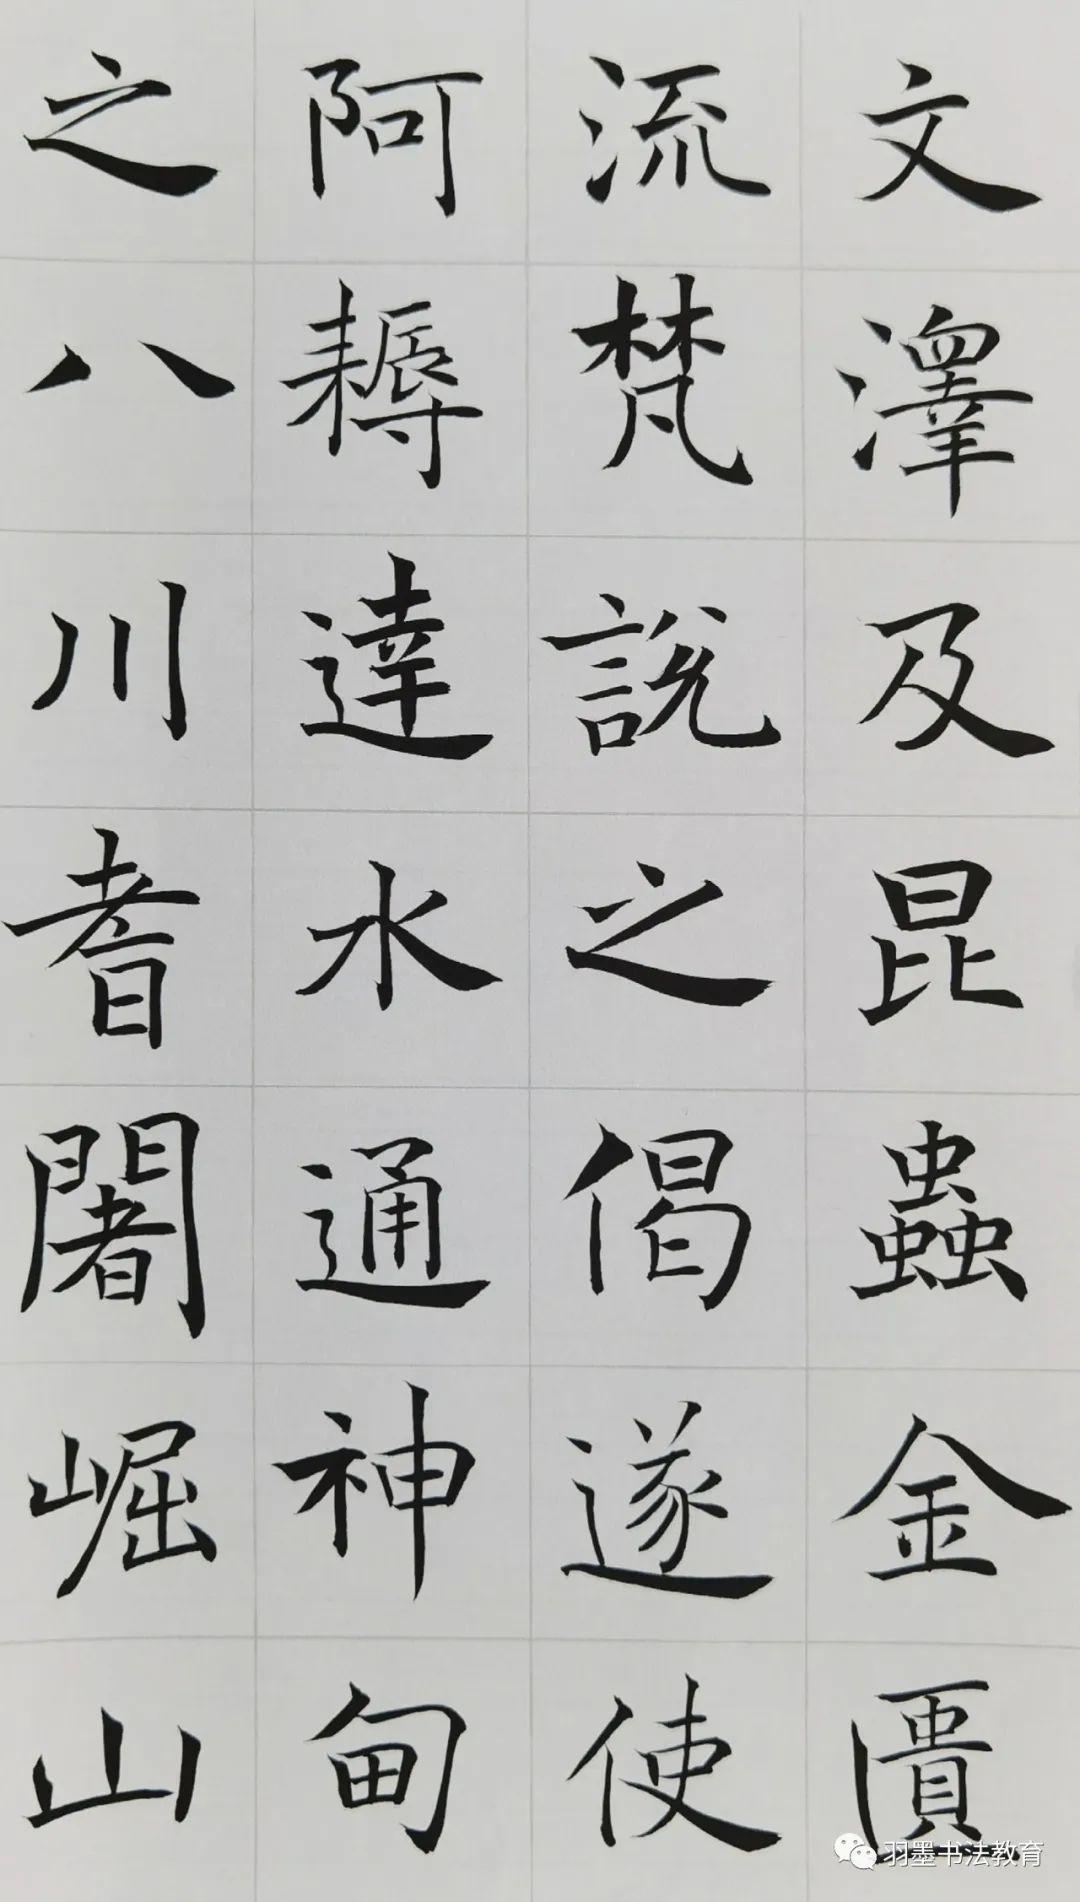 文澤及昆蟲金匱
流梵說之偈遂使
阿耨達水通神甸
之八川耆闍崛山
羽墨书法教育